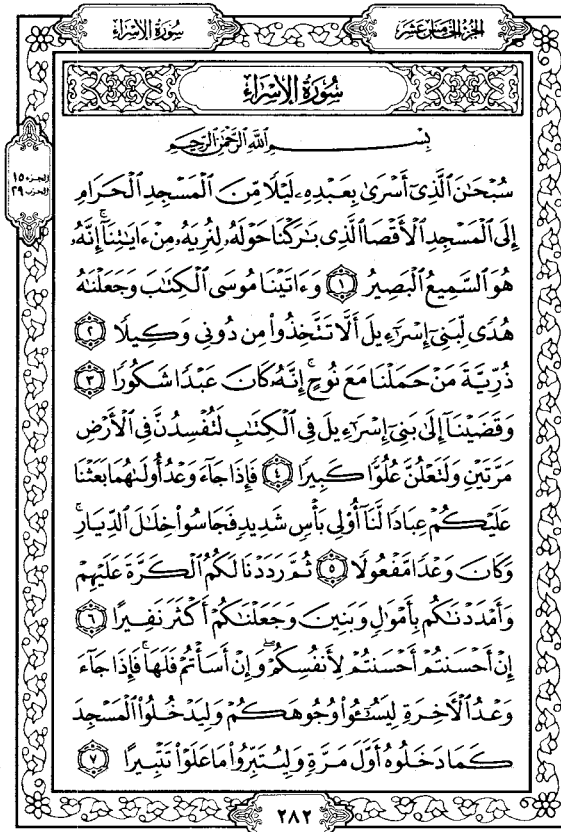 الجزء الخامس عشر
سورة الإسراء
سُورَةُ الإِسْرَاءِ
الجزء ١٥
الحزب ٢٩
بِسْمِ ٱللَّهِ ٱلرَّحْمَٰنِ ٱلرَّحِيمِ
سُبْحَٰنَ ٱلَّذِىٓ أَسْرَىٰ بِعَبْدِهِۦ لَيْلًا مِّنَ ٱلْمَسْجِدِ ٱلْحَرَامِ
إِلَى ٱلْمَسْجِدِ ٱلْأَقْصَا ٱلَّذِى بَٰرَكْنَا حَوْلَهُۥ لِنُرِيَهُۥ مِنْ ءَايَٰتِنَآ ۚ إِنَّهُۥ
هُوَ ٱلسَّمِيعُ ٱلْبَصِيرُ ١ وَءَاتَيْنَا مُوسَى ٱلْكِتَٰبَ وَجَعَلْنَٰهُ
هُدًى لِّبَنِىٓ إِسْرَٰٓءِيلَ أَلَّا تَتَّخِذُوا۟ مِن دُونِى وَكِيلًا ٢
ذُرِّيَّةَ مَنْ حَمَلْنَا مَعَ نُوحٍ ۚ إِنَّهُۥ كَانَ عَبْدًا شَكُورًا ٣
وَقَضَيْنَآ إِلَىٰ بَنِىٓ إِسْرَٰٓءِيلَ فِى ٱلْكِتَٰبِ لَتُفْسِدُنَّ فِى ٱلْأَرْضِ
مَرَّتَيْنِ وَلَتَعْلُنَّ عُلُوًّا كَبِيرًا ٤ فَإِذَا جَآءَ وَعْدُ أُولَىٰهُمَا بَعَثْنَا
عَلَيْكُمْ عِبَادًا لَّنَآ أُو۟لِى بَأْسٍ شَدِيدٍ فَجَاسُوا۟ خِلَٰلَ ٱلدِّيَارِ ۚ
وَكَانَ وَعْدًا مَّفْعُولًا ٥ ثُمَّ رَدَدْنَا لَكُمُ ٱلْكَرَّةَ عَلَيْهِمْ
وَأَمْدَدْنَٰكُم بِأَمْوَٰلٍ وَبَنِينَ وَجَعَلْنَٰكُمْ أَكْثَرَ نَفِيرًا ٦
إِنْ أَحْسَنتُمْ أَحْسَنتُمْ لِأَنفُسِكُمْ ۖ وَإِنْ أَسَأْتُمْ فَلَهَا ۚ فَإِذَا جَآءَ
وَعْدُ ٱلْءَاخِرَةِ لِيَسُـۥٓـُٔوا۟ وُجُوهَكُمْ وَلِيَدْخُلُوا۟ ٱلْمَسْجِدَ
كَمَا دَخَلُوهُ أَوَّلَ مَرَّةٍ وَلِيُتَبِّرُوا۟ مَا عَلَوْا۟ تَتْبِيرًا ٧
٢٨٢